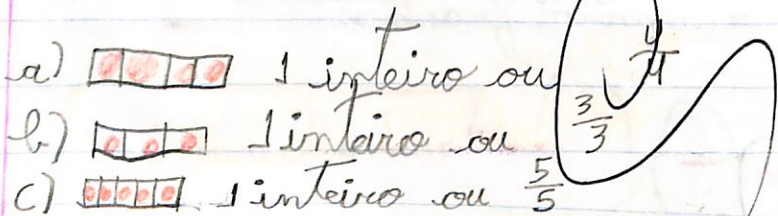 a) 1 inteiro ou 4/4
b) 1 inteiro ou 3/3
c) 1 inteiro ou 5/5